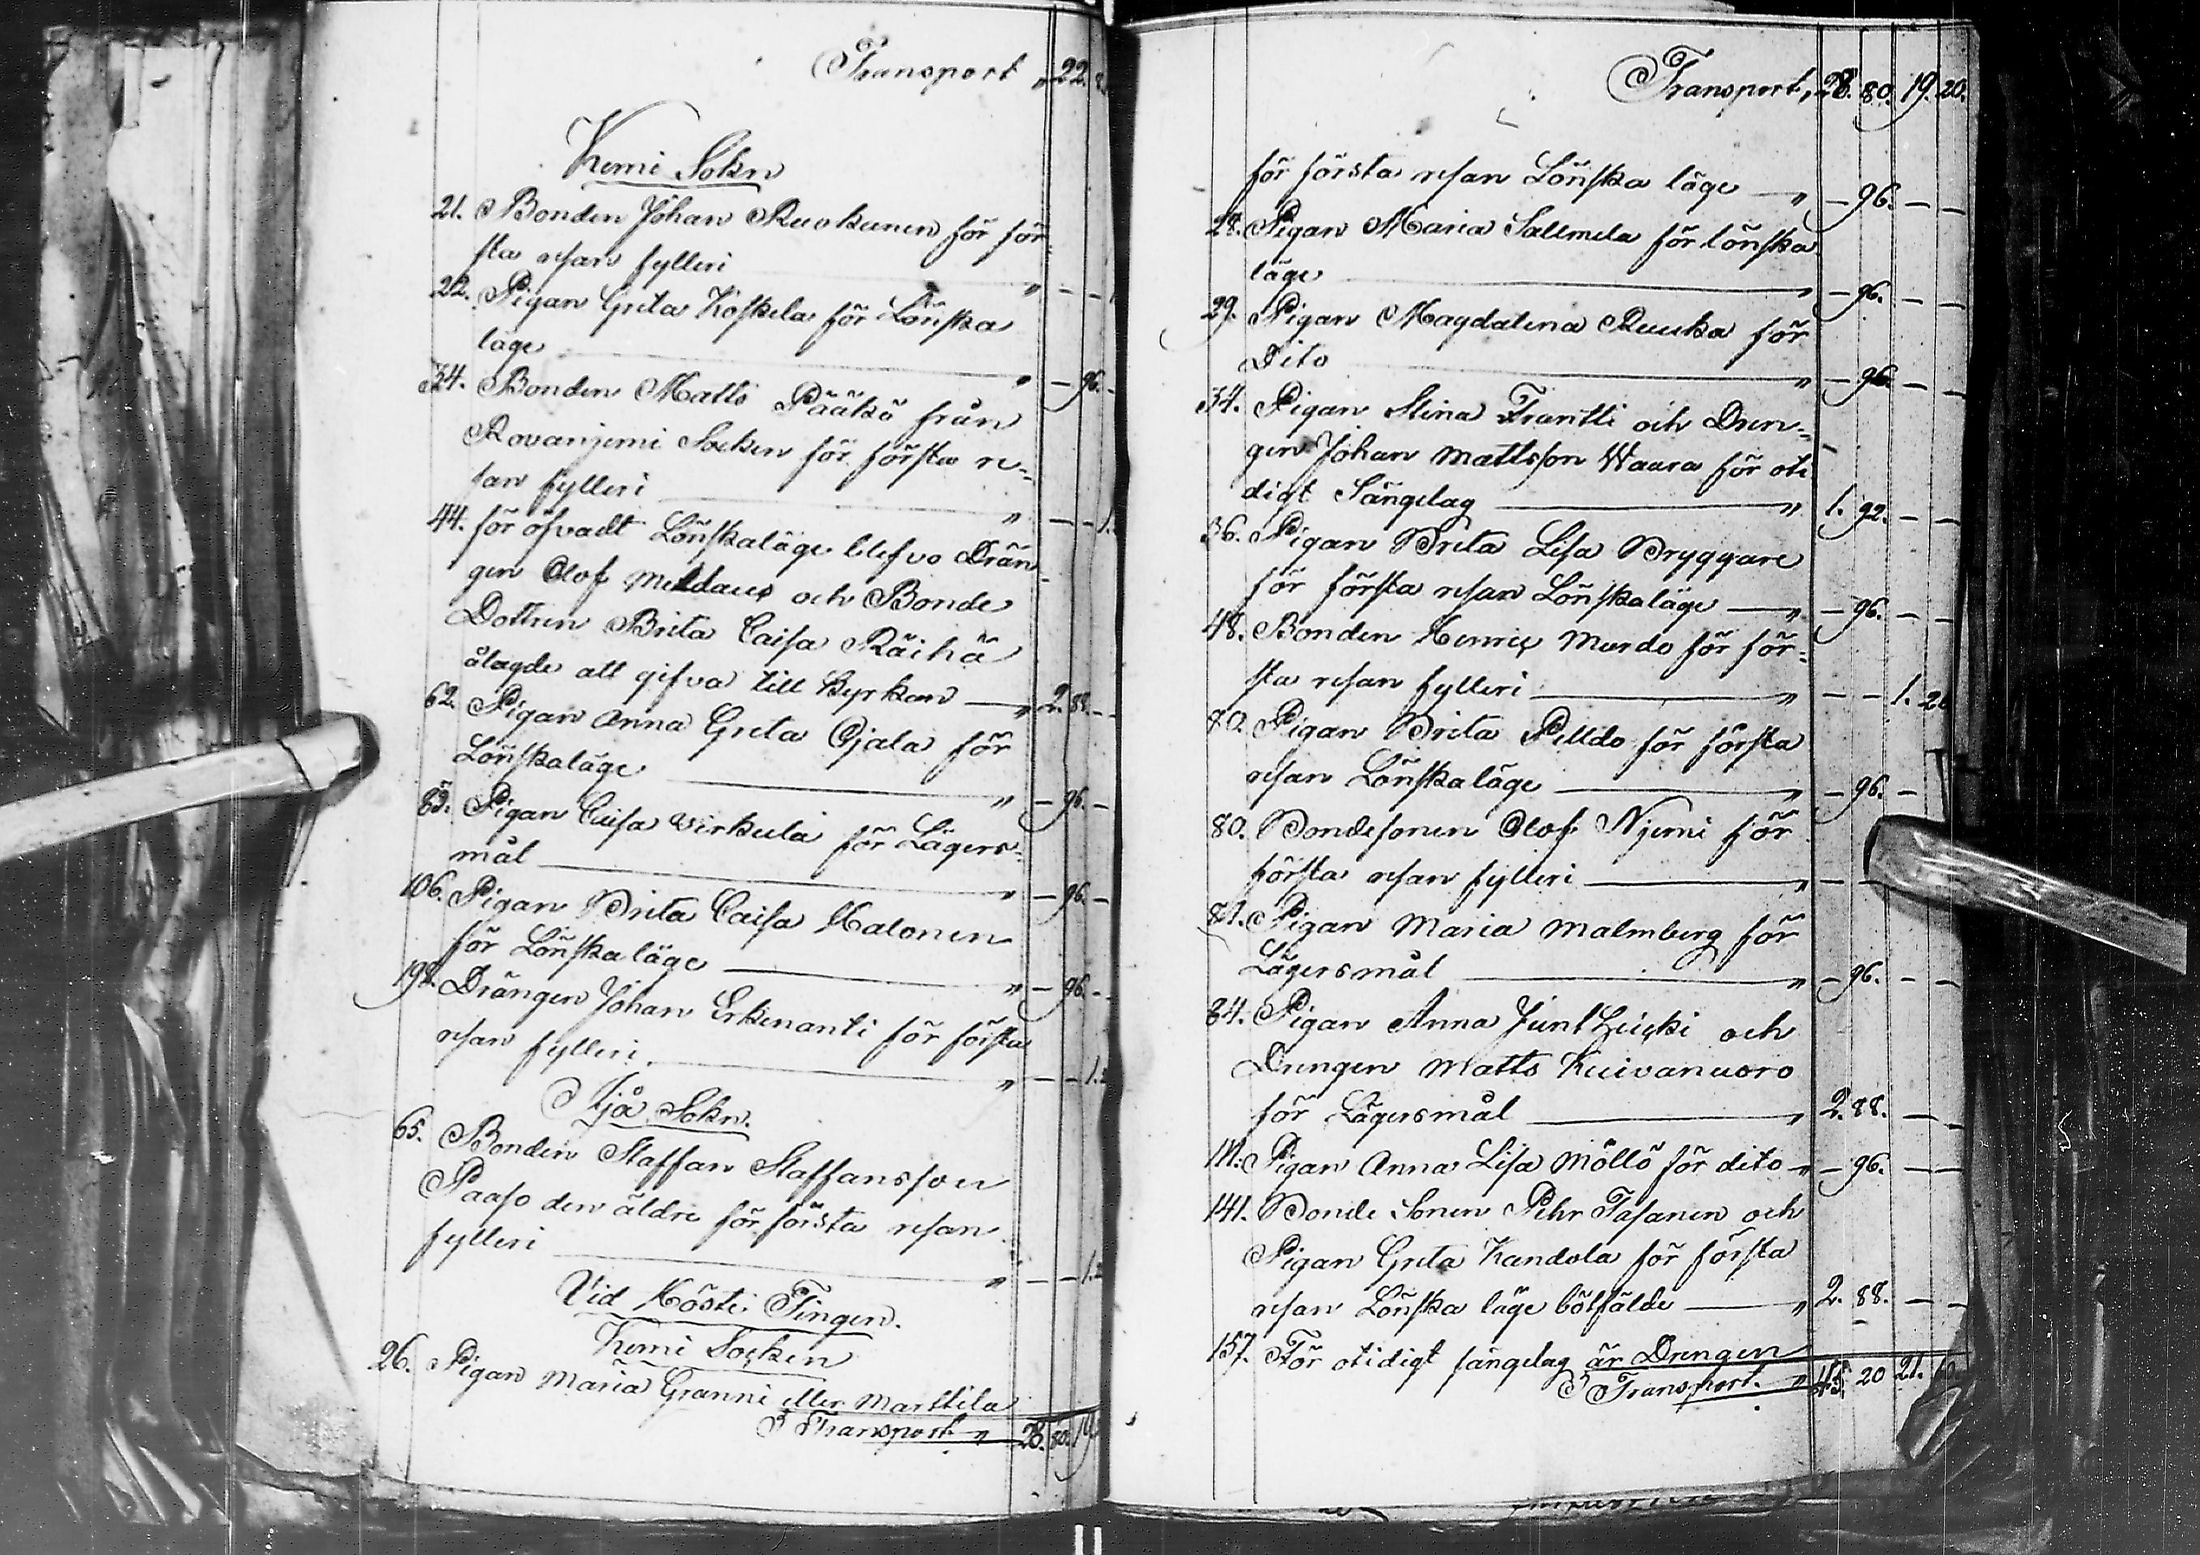 Transport " 22.
Kemi Sokn
21. Bonden Johan Ruokunen för för-
sta resan fylleri " — —
22. Pigan Greta Koskela för Lönska
läge " — 96. —
34. Bonden Matts Pääkö från
Rovanjemi Socken för första re-
san fylleri " — — 1.
44. för öfvadt Lönskaläge blefvo Drän-
gen Olof och Bonde
Dottren Brita Caisa Räihä
ålagde att gifva till Kyrkan — " 2. 88. —
62. Pigan Anna Greta Ojala för
Lönskaläge " — 96. —
83. Pigan Caisa Virkula för Lägers-
mål " — 96. —
106. Pigan Brita Caisa Halonen
för Lönskaläge " — 96. —
198. Drängen Johan Erkinanti för första
resan fylleri. " — — 1.
Ijå Sokn.
65. Bonden Staffan Staffansson
Paaso den äldre för första resan
fylleri " — — 1.
Vid Höste Tingen.
Kemi Socken
26. Pigan Maria Granni eller Marttila
Transport " 28. 80. 19.
Transport, 28. 80. 19. 20.
för första resan Lönska läge — " — 96. — —
28. Pigan Maria Sallmela för lönska
läge " — 96. — —
29. Pigan Magdalena Ruuka för
Dito " — 96. — —
34. Pigan Stina Frantti och Dren-
gen Johan Mattsson Waara för oti
digt Sängelag " 1. 92. — —
36. Pigan Brita Lisa Bryggare
för första resan Lönskaläge — " — 96. — —
48. Bonden Henric Murdo för för-
sta resan fylleri " — — 1. 20
70. Pigan Brita Pelldo för första
resan Lönskaläge " — 96. —
80. Bondesonen Olof Njemi för
första resan fylleri " —
81. Pigan Maria Malmberg för
Lägersmål " — 96. — —
84. Pigan Anna och
Drengen Matts Kuivanuoro
för Lägersmål " 2. 88. — —
111. Pigan Anna Lisa Möllö för dito " — 96. — —
141. Bonde Sonen Pehr Tasanen och
Pigan Greta Kandola för första
resan Lönska läge bötfälde " 2. 88. — —
157. För otidigt sängelag är Drengen
Transport. " 43. 20 21. 60